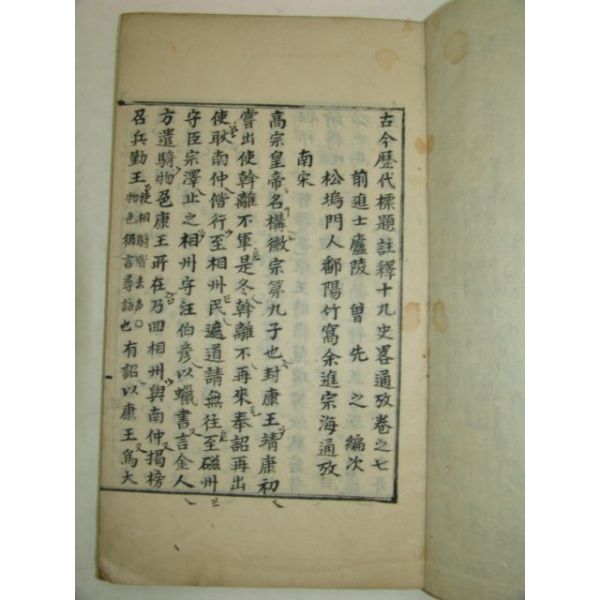 古今歷代標題註釋十九史畧通攷卷之七
前進士廬陵 曾 先 之 編次
松塢門人鄱陽竹窩余進宗海通攷
南宋
高宗皇帝名構徽宗第九子也封康王靖康初
嘗出使斡離不軍是冬斡離不再來奉詔再出
使耿南仲偕行至相州民遮道請無往至磁州
守臣宗澤止之相州守汪伯彥以蠟書言金人
方遣騎物色康王所在乃回相州與南仲揭榜
召兵勤王使相騎皆去聲○物色猶言尋訪也有詔以康王爲大